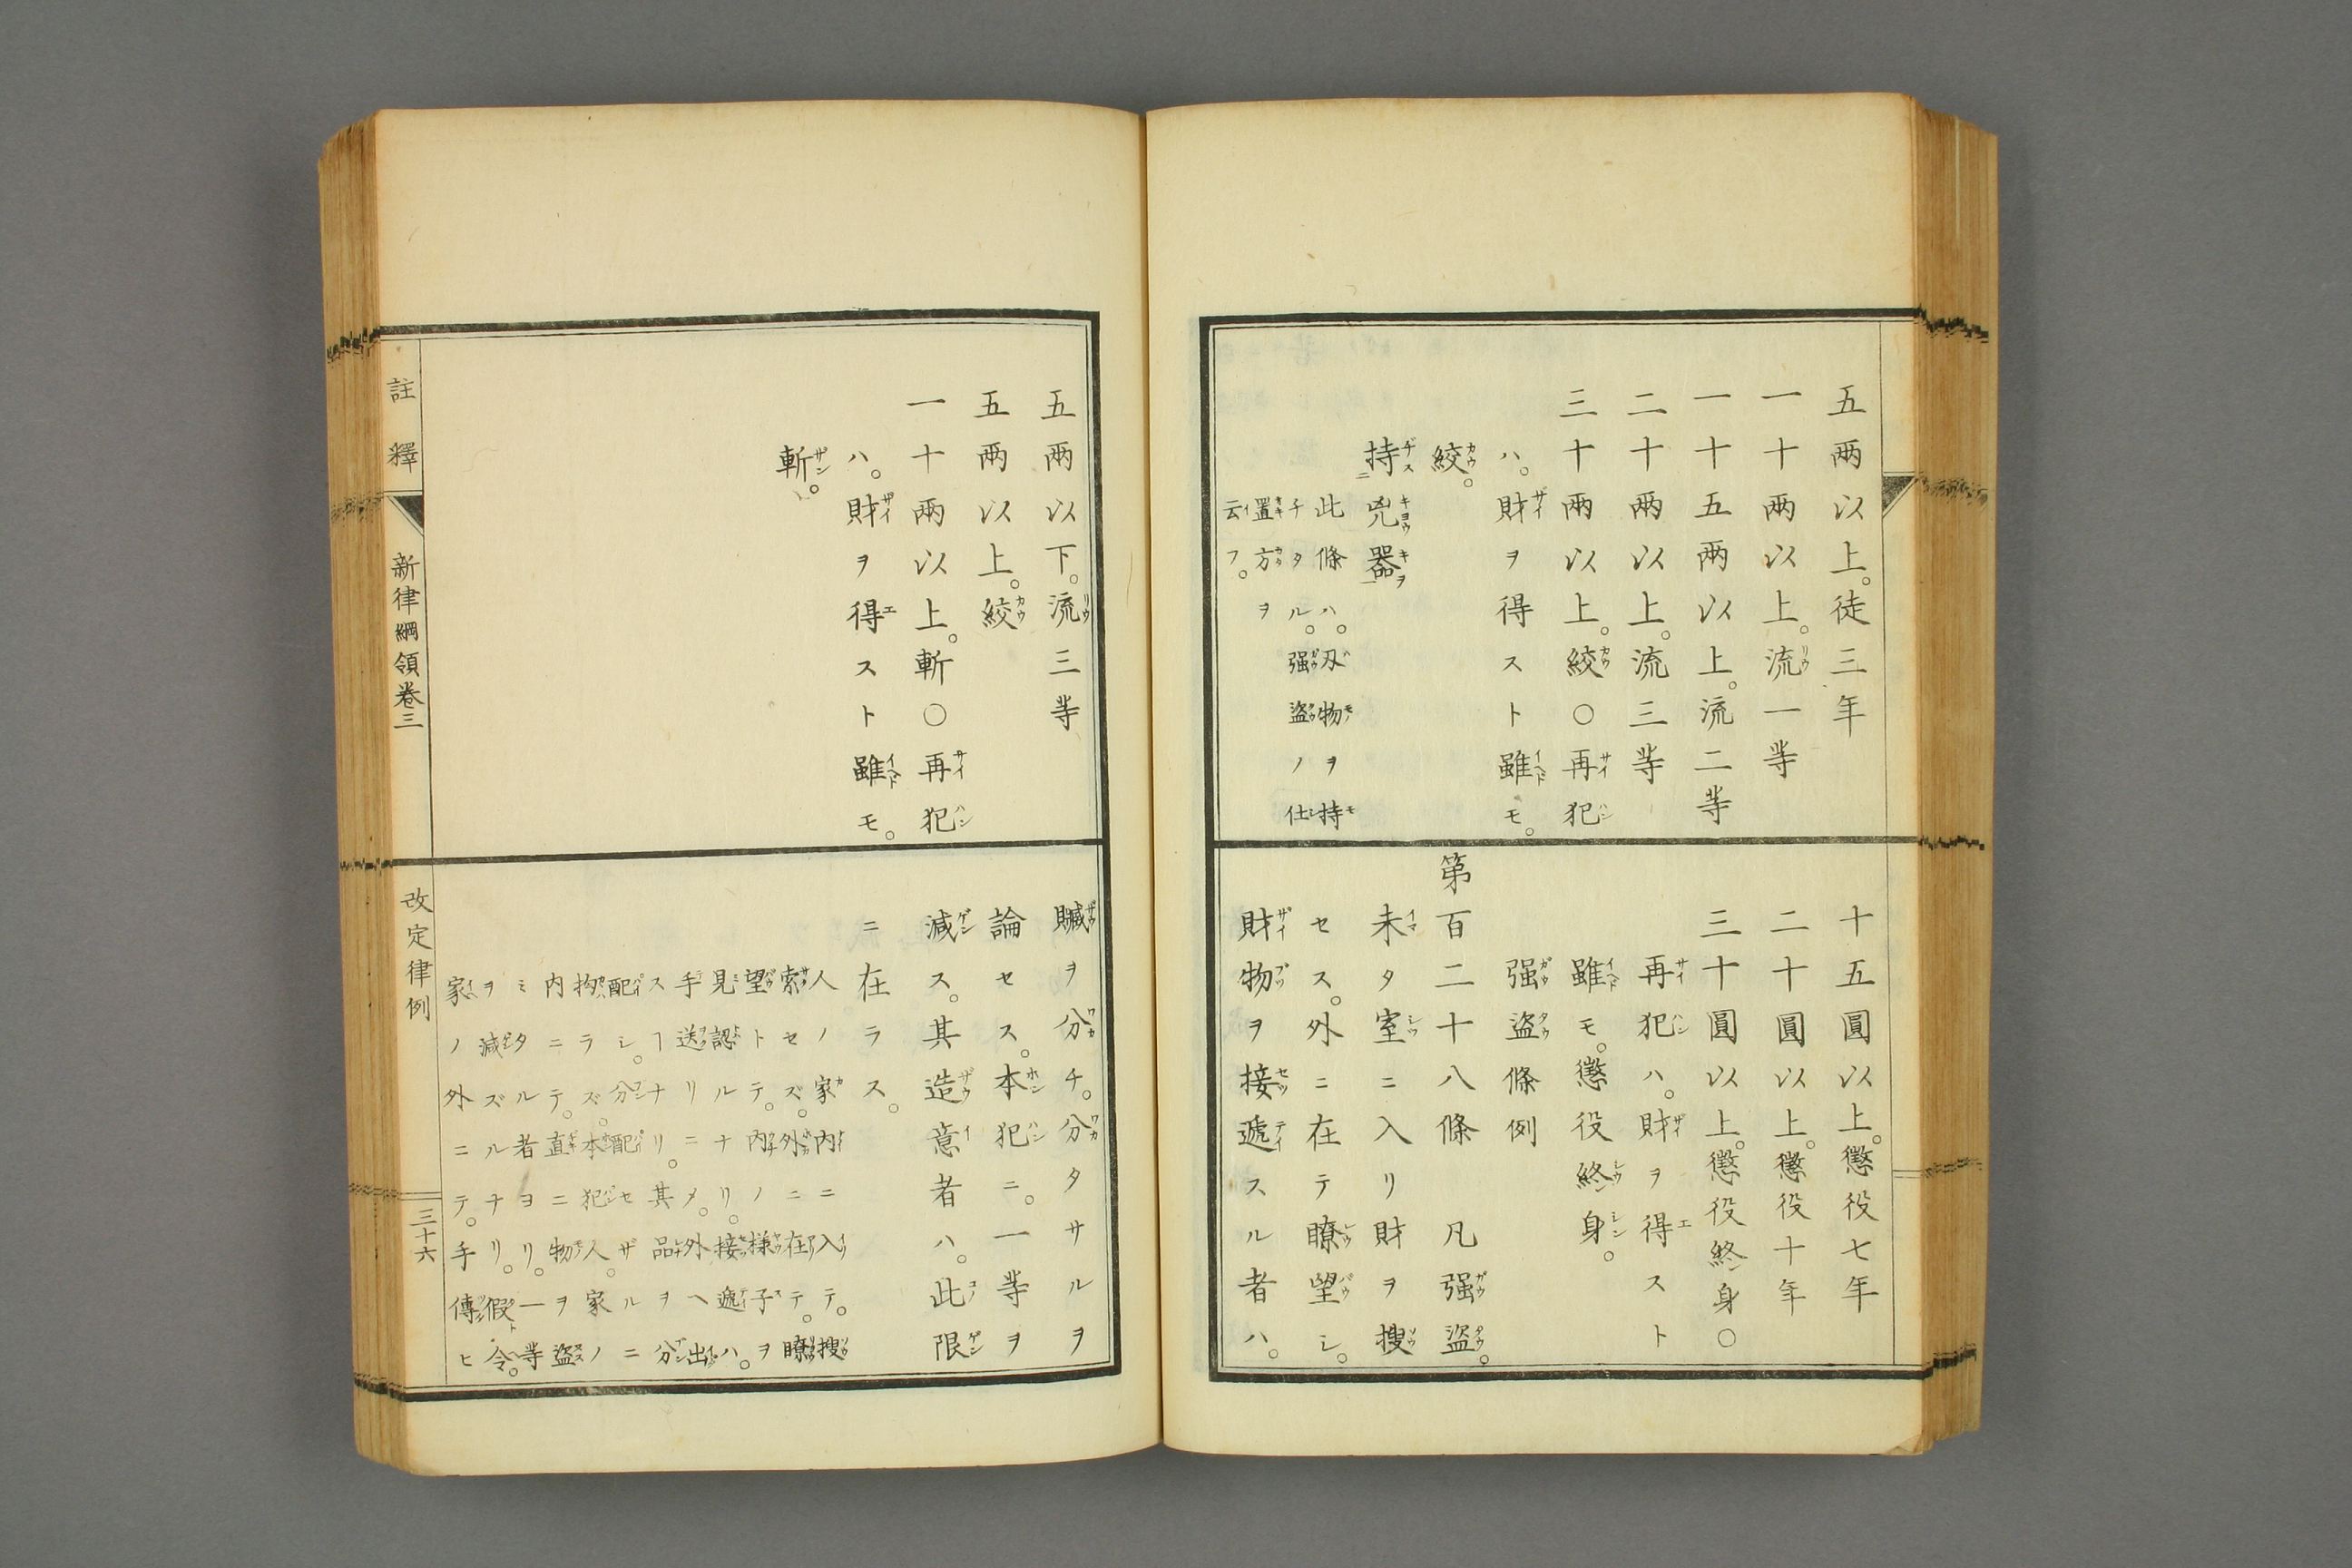 五兩以上。徒三年
一十兩以上。流一等
一十五兩以上。流二等
二十兩以上。流三等
三十兩以上。絞○再犯
ハ。財ヲ得スト雖モ。
絞。
持凶器
此條ハ。刄物ヲ持
チタル。强盜ノ仕
置方ヲ
云フ。
十五圓以上。懲役七年
二十圓以上。懲役十年
三十圓以上。懲役終身○
再犯ハ。財ヲ得スト
雖モ。懲役終身。
强盜條例
第百二十八條 凡强盜。
未タ室ニ入リ財ヲ搜
セス。外ニ在テ瞭望シ。
財物ヲ接遞スル者ハ。
五兩以下。流三等
五兩以上。絞
一十兩以上。斬○再犯
ハ。財ヲ得スト雖モ。
斬。
贓ヲ分チ。分タサルヲ
論セス。本犯ニ。一等ヲ
減ス。其造意者ハ。此限
ニ在ラス。
人ノ家内ニ入テ。搜
索セズ。外ニ在テ。瞭
望トテ。内ノ様子ヲ
見認ルナリ。接遞ハ。
手送リニメ。外ヘ出
スヿナリ。其品ヲ分
配シ。分配セザルニ
拘ラズ。本犯人家ノ
内ニテ。直ニ物ヲ盜
ミタル者ヨリ。一等
ヲ減ズルナリ。假令。
家ノ外ニテ。手傳ヒ
註釋
新律綱領卷三
改定律例
三十六